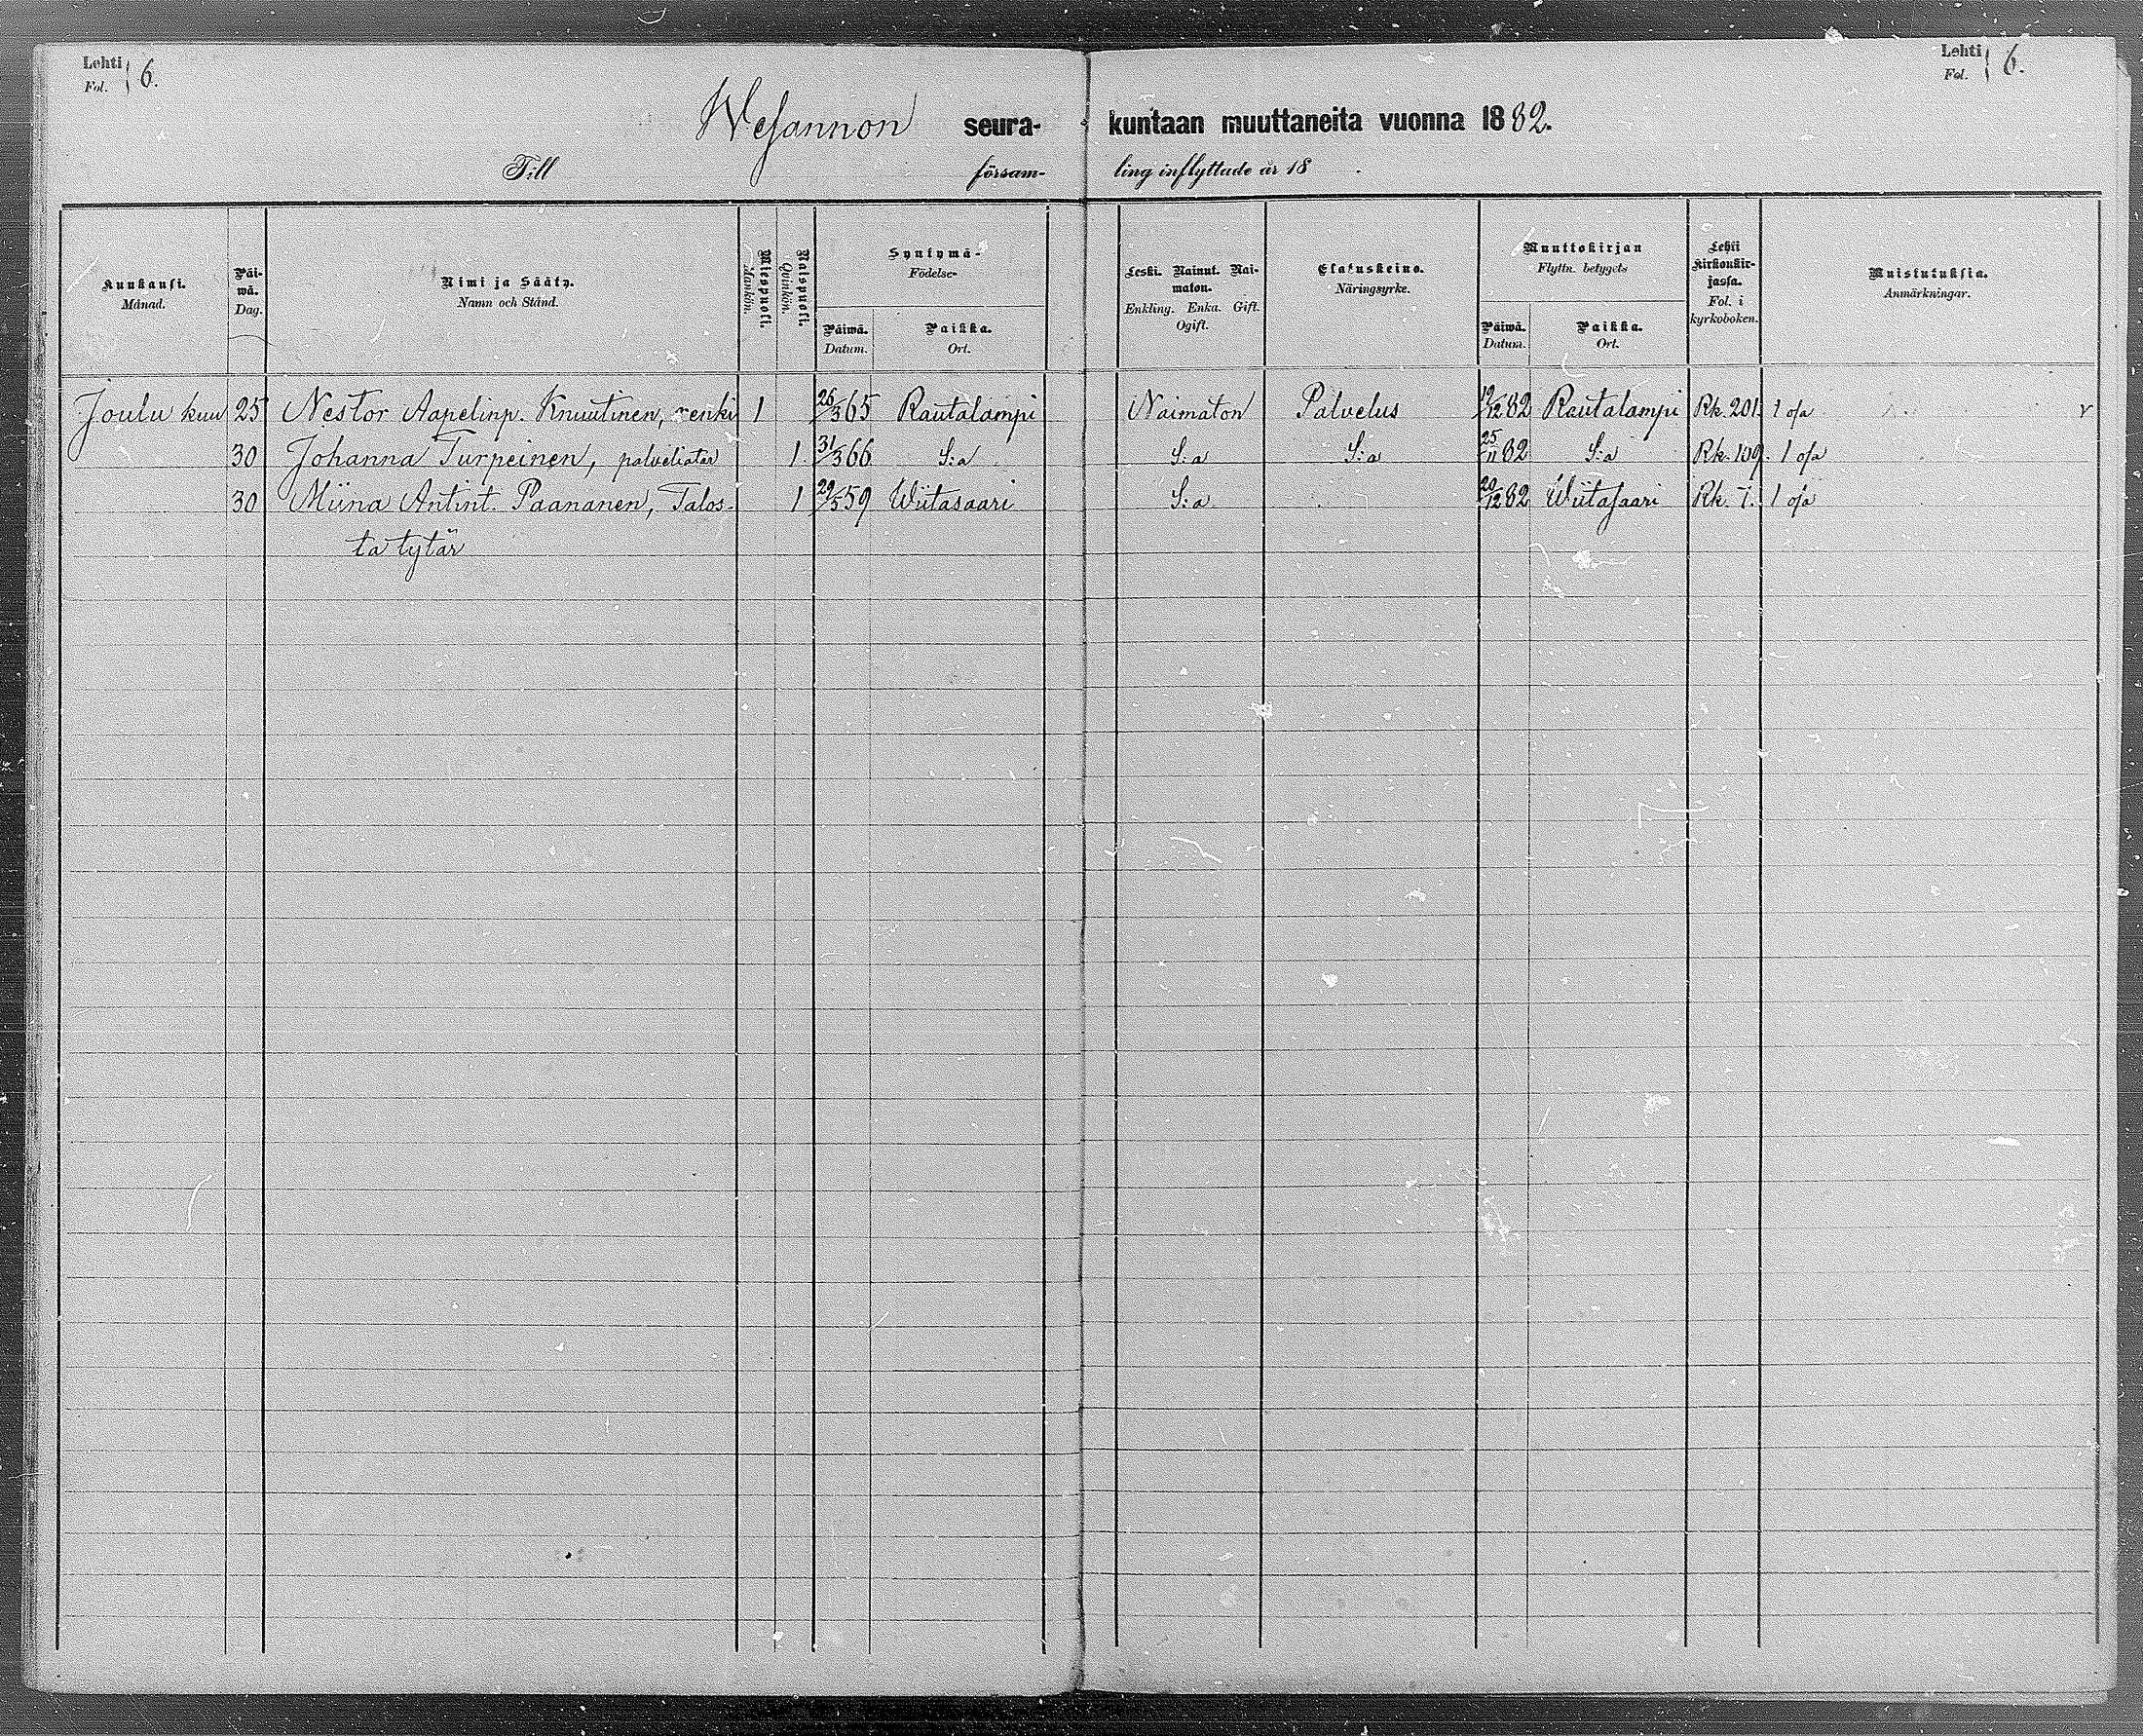 Lehti Fol. 6.
Lehti Fol. 6.
Wesannon seura- kuntaan muuttaneita vuonna 1882.
Till försam- ling inflyttade år 18 .
Kuukausi. Månad.
Päi-wä. Dag.
Nimi ja Sääty. Namn och Stånd.
Miespuoli. Mankön.
Naispuoli. Qvinkön.
Syntymä- Födelse-
Päiwä. Datum.
Paikka. Ort.
Leski. Nainut. Nai-maton. Enkling. Enka. Gift. Ogift.
Elatuskeino. Näringsyrke.
Muuttokirjan Flyttn. betygets
Päiwä. Datum.
Paikka. Ort.
Lehti Kirkonkir-jassa. Fol. i kyrkoboken.
Muistutuksia. Anmärkningar.
Joulu kuu 25 Nestor Aapelinp. Knuutinen, renki 1 26/3 65 Rautalampi Naimaton Palvelus 12/12 82 Rautalampi Rk. 201. 1 o/a
30 Johanna Turpeinen, palveliatar 1. 31/3 66 S:a S:a S:a 25/11 82 S:a Rk. 109. 1 o/a
30 Miina Antint. Paananen, Talos- 1 29/5 59 Wiitasaari S:a 20/12 82 Wiitasaari Rk. 7. 1 o/a
ta tytär